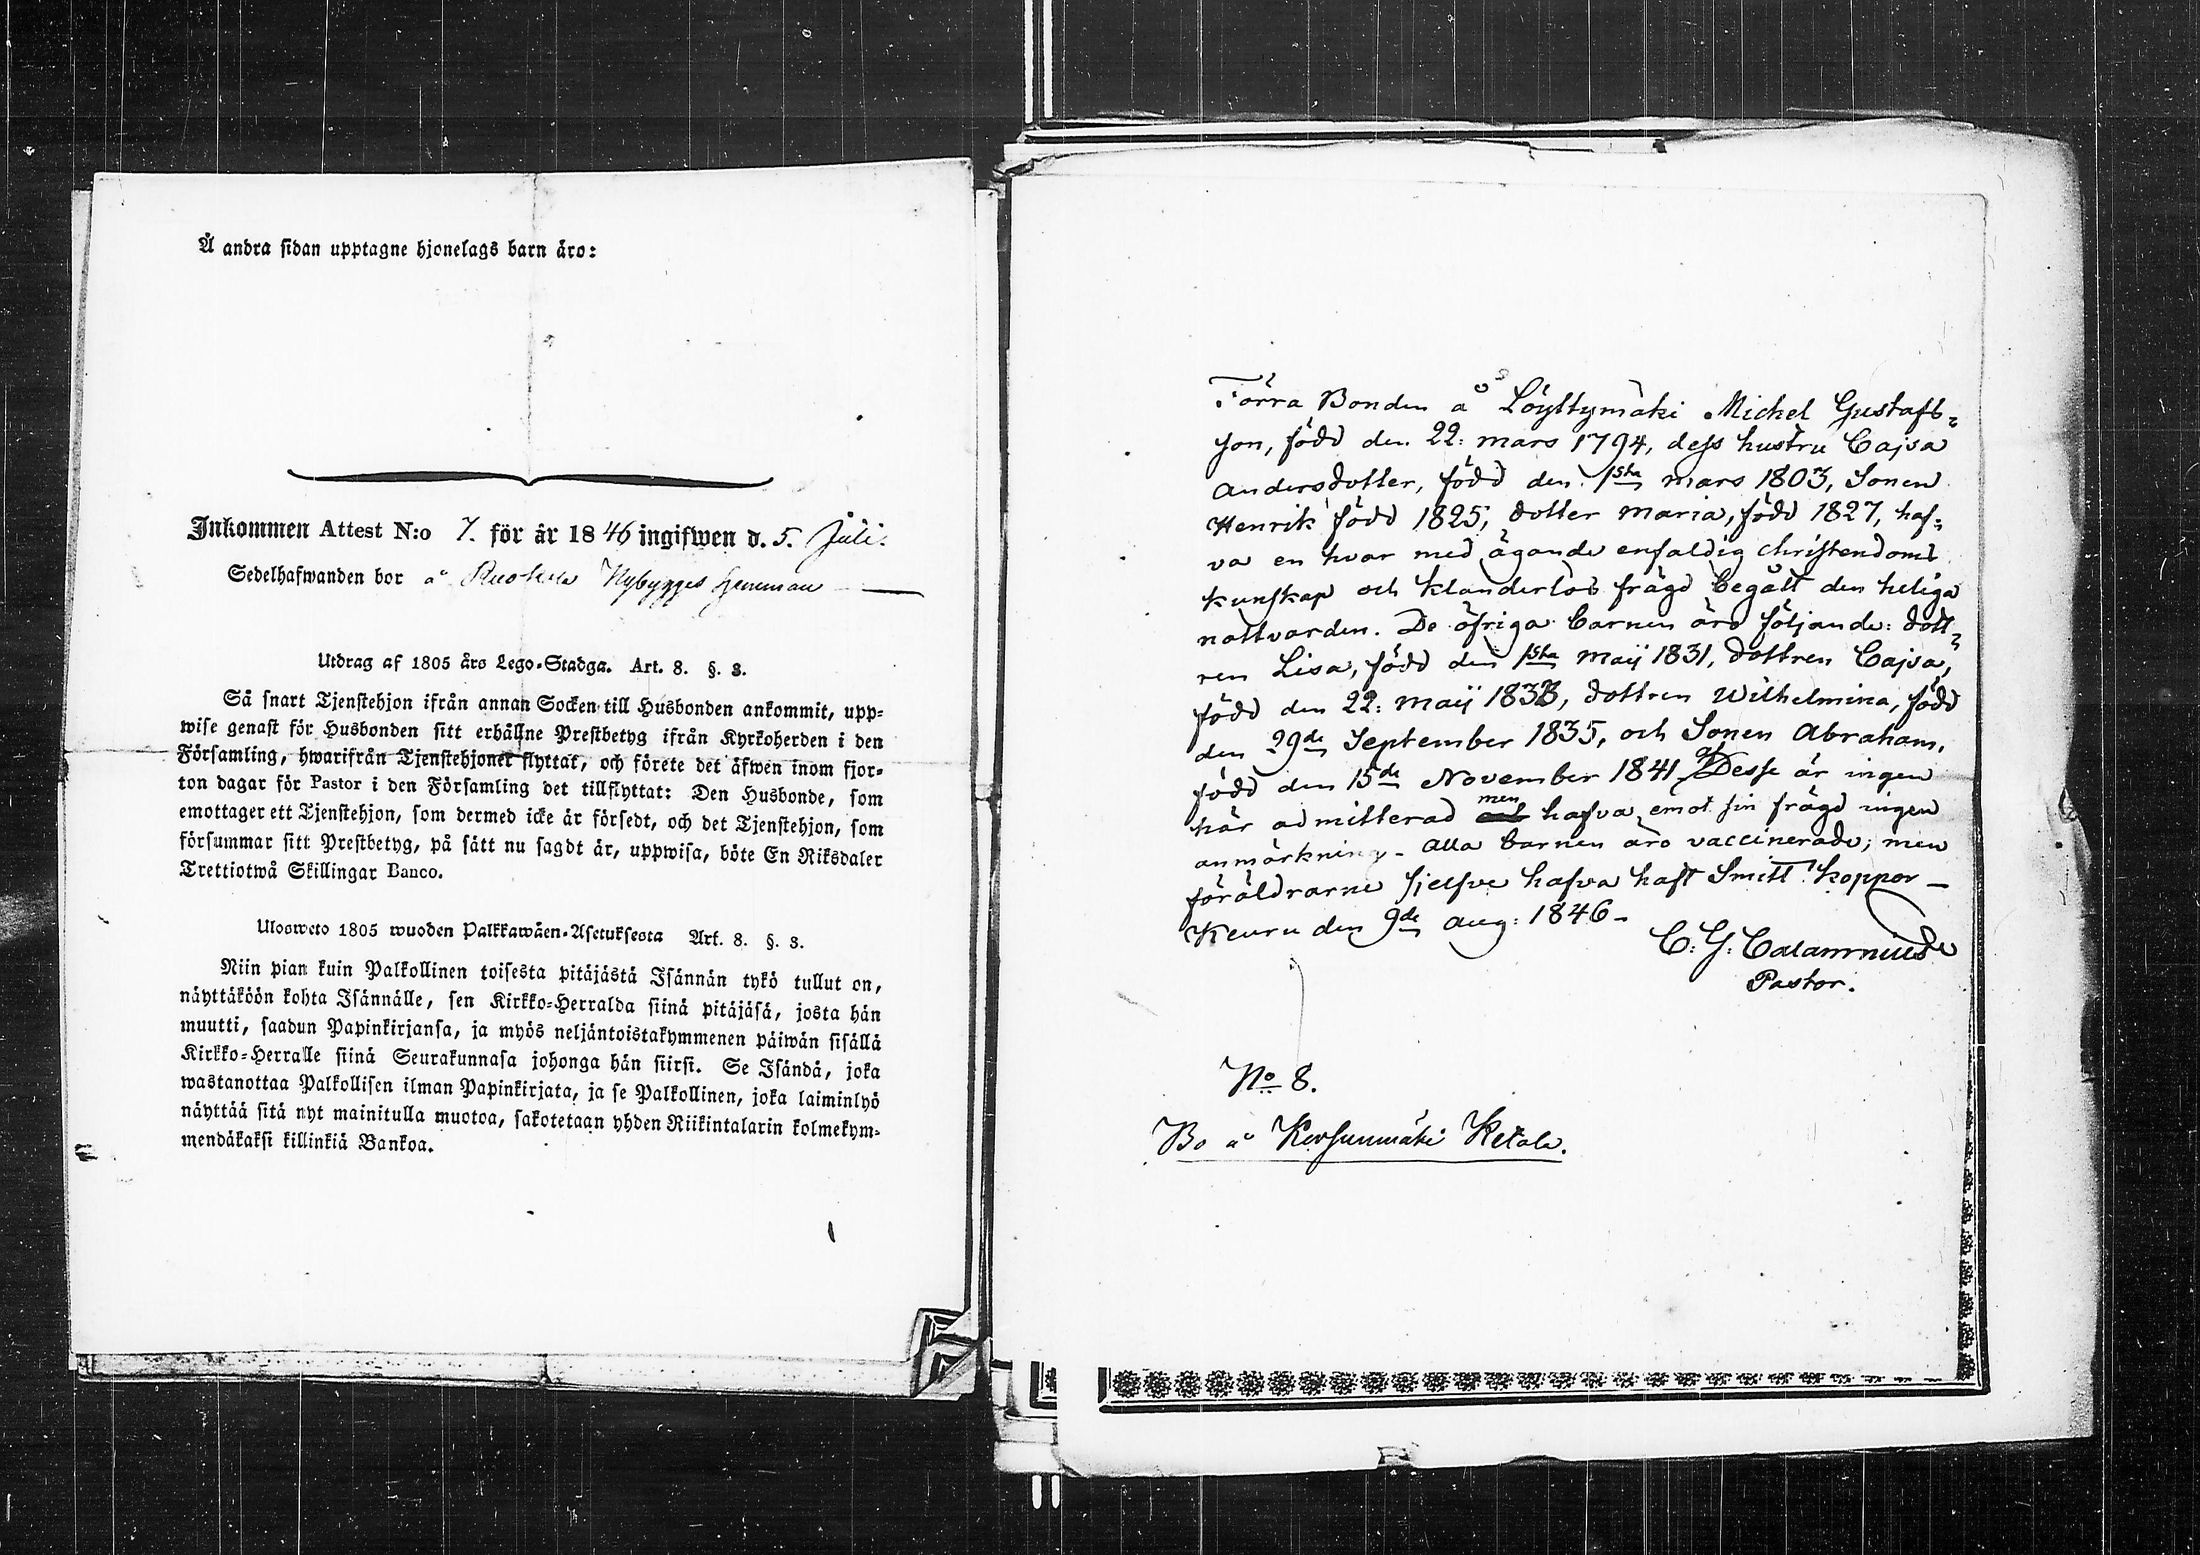 Å andra sidan upptagne hjonelags barn äro:
Inkommen Attest N:o 7. för år 1846 ingifwen d. 5. Juli.
Sedelhafwanden bor å Nybygges hemman
Utdrag af 1805 års Lego-Stadga. Art. 8. §. 3.
Så snart Tjenstehjon ifrån annan Socken till Husbonden ankommit, upp-
wise genast för Husbonden sitt erhållne Prestbetyg ifrån Kyrkoherden i den
Församling, hwarifrån Tjenstehjonet flyttat, och förete det äfwen inom fjor-
ton dagar för Pastor i den Församling det tillflyttat: Den Husbonde, som
emottager ett Tjenstehjon, som dermed icke är försedt, och det Tjenstehjon, som
försummar sitt Prestbetyg, på sätt nu sagdt är, uppwisa, böte En Riksdaler
Trettiotwå Skillingar Banco.
Ulosweto 1805 wuoden Palkkawäen-Asetuksesta Art. 8. §. 3.
Niin pian kuin Palkollinen toisesta pitäjästä Isännän tykö tullut on,
näyttäköön kohta Isännälle, sen Kirkko-Herralda siinä pitäjäsä, josta hän
muutti, saadun Papinkirjansa, ja myös neljäntoistakymmenen päiwän sisällä
Kirkko-Herralle siinä Seurakunnasa johonga hän siirsi. Se Isändä, joka
wastanottaa Palkollisen ilman Papinkirjata, ja se Palkollinen, joka laiminlyö
näyttää sitä nyt mainitulla muotoa, sakotetaan yhden Riikintalarin kolmekym-
mendäkaksi killinkiä Bankoa.
Förra Bonden å Löyttymäki Michel Gustafs=
son, född den 22: mars 1794, dess hustru Cajsa
andersdotter, född den 1sta mars 1803, Sonen
Henrik född 1825, dotter maria, född 1827, haf=
va en hvar med ägande enfaldig christendoms
kunskap och klanderlös frägd begått den heliga
nattvarden. De öfriga barnen äro följande: dott=
ren Lisa, född den 1sta maij 1831, dottren Cajsa,
född den 22: maij 1833, dottren Wilhelmina, född
den 29de September 1835, och Sonen Abraham,
född den 15de November 1841. af Desse är ingen
här admitterad men hafva emot sin frägd ingen
anmärkning - alla barnen äro vaccinerade; men
föräldrarne sjelfve hafva haft Smitt koppor -
Keuru den 9de aug: 1846 -
C: G: Calamnius
Pastor.
No 8.
Bo å Kersunmäki Ketola.